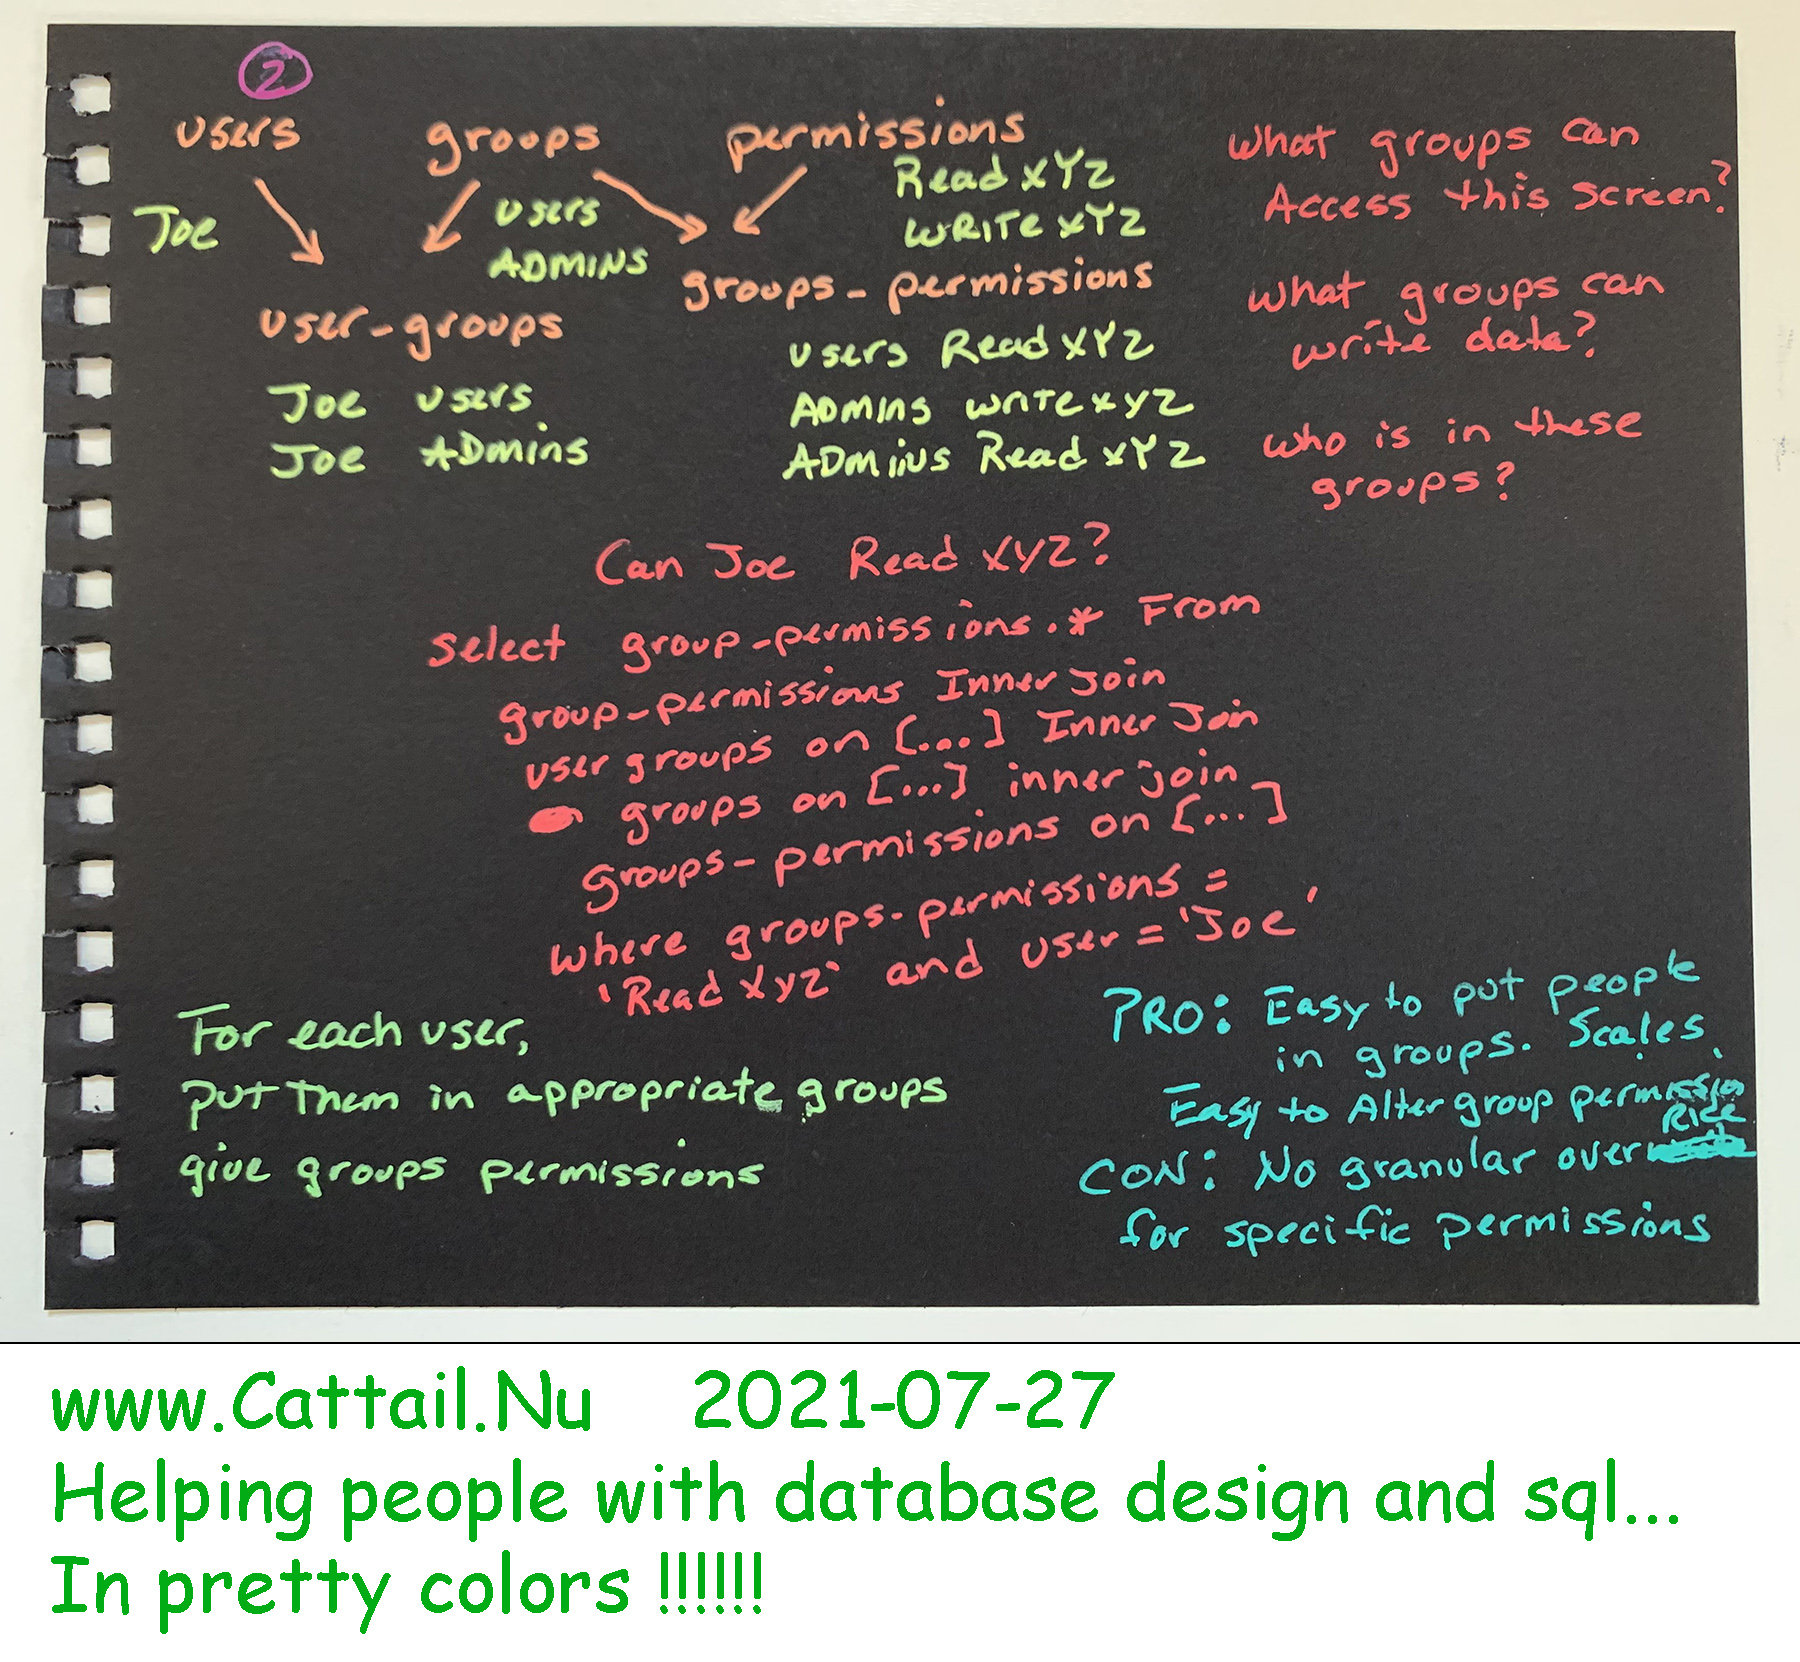 2
users groups permissions
Joe
users
ADMINS
Read XYZ
WRITE XYZ
user-groups
Joe users
Joe ADmins
groups-permissions
users Read XYZ
ADMINS WRITE XYZ
ADMINS Read XYZ
What groups can
Access this screen?
What groups can
write data?
who is in these
groups?
Can Joe Read XYZ?
select group-permissions.* From
group-permissions Inner Join
user groups on [...] Inner Join
groups on [...] inner join
groups-permissions on [...]
where groups-permissions =
'Read Xyz' and user = 'Joe'
For each user,
put Them in appropriate groups
give groups permissions
PRO: Easy to put people
in groups. Scales.
Easy to Alter group permission
CON: No granular over Ride
for specific permissions
www.Cattail.Nu 2021-07-27
Helping people with database design and sql...
In pretty colors !!!!!!